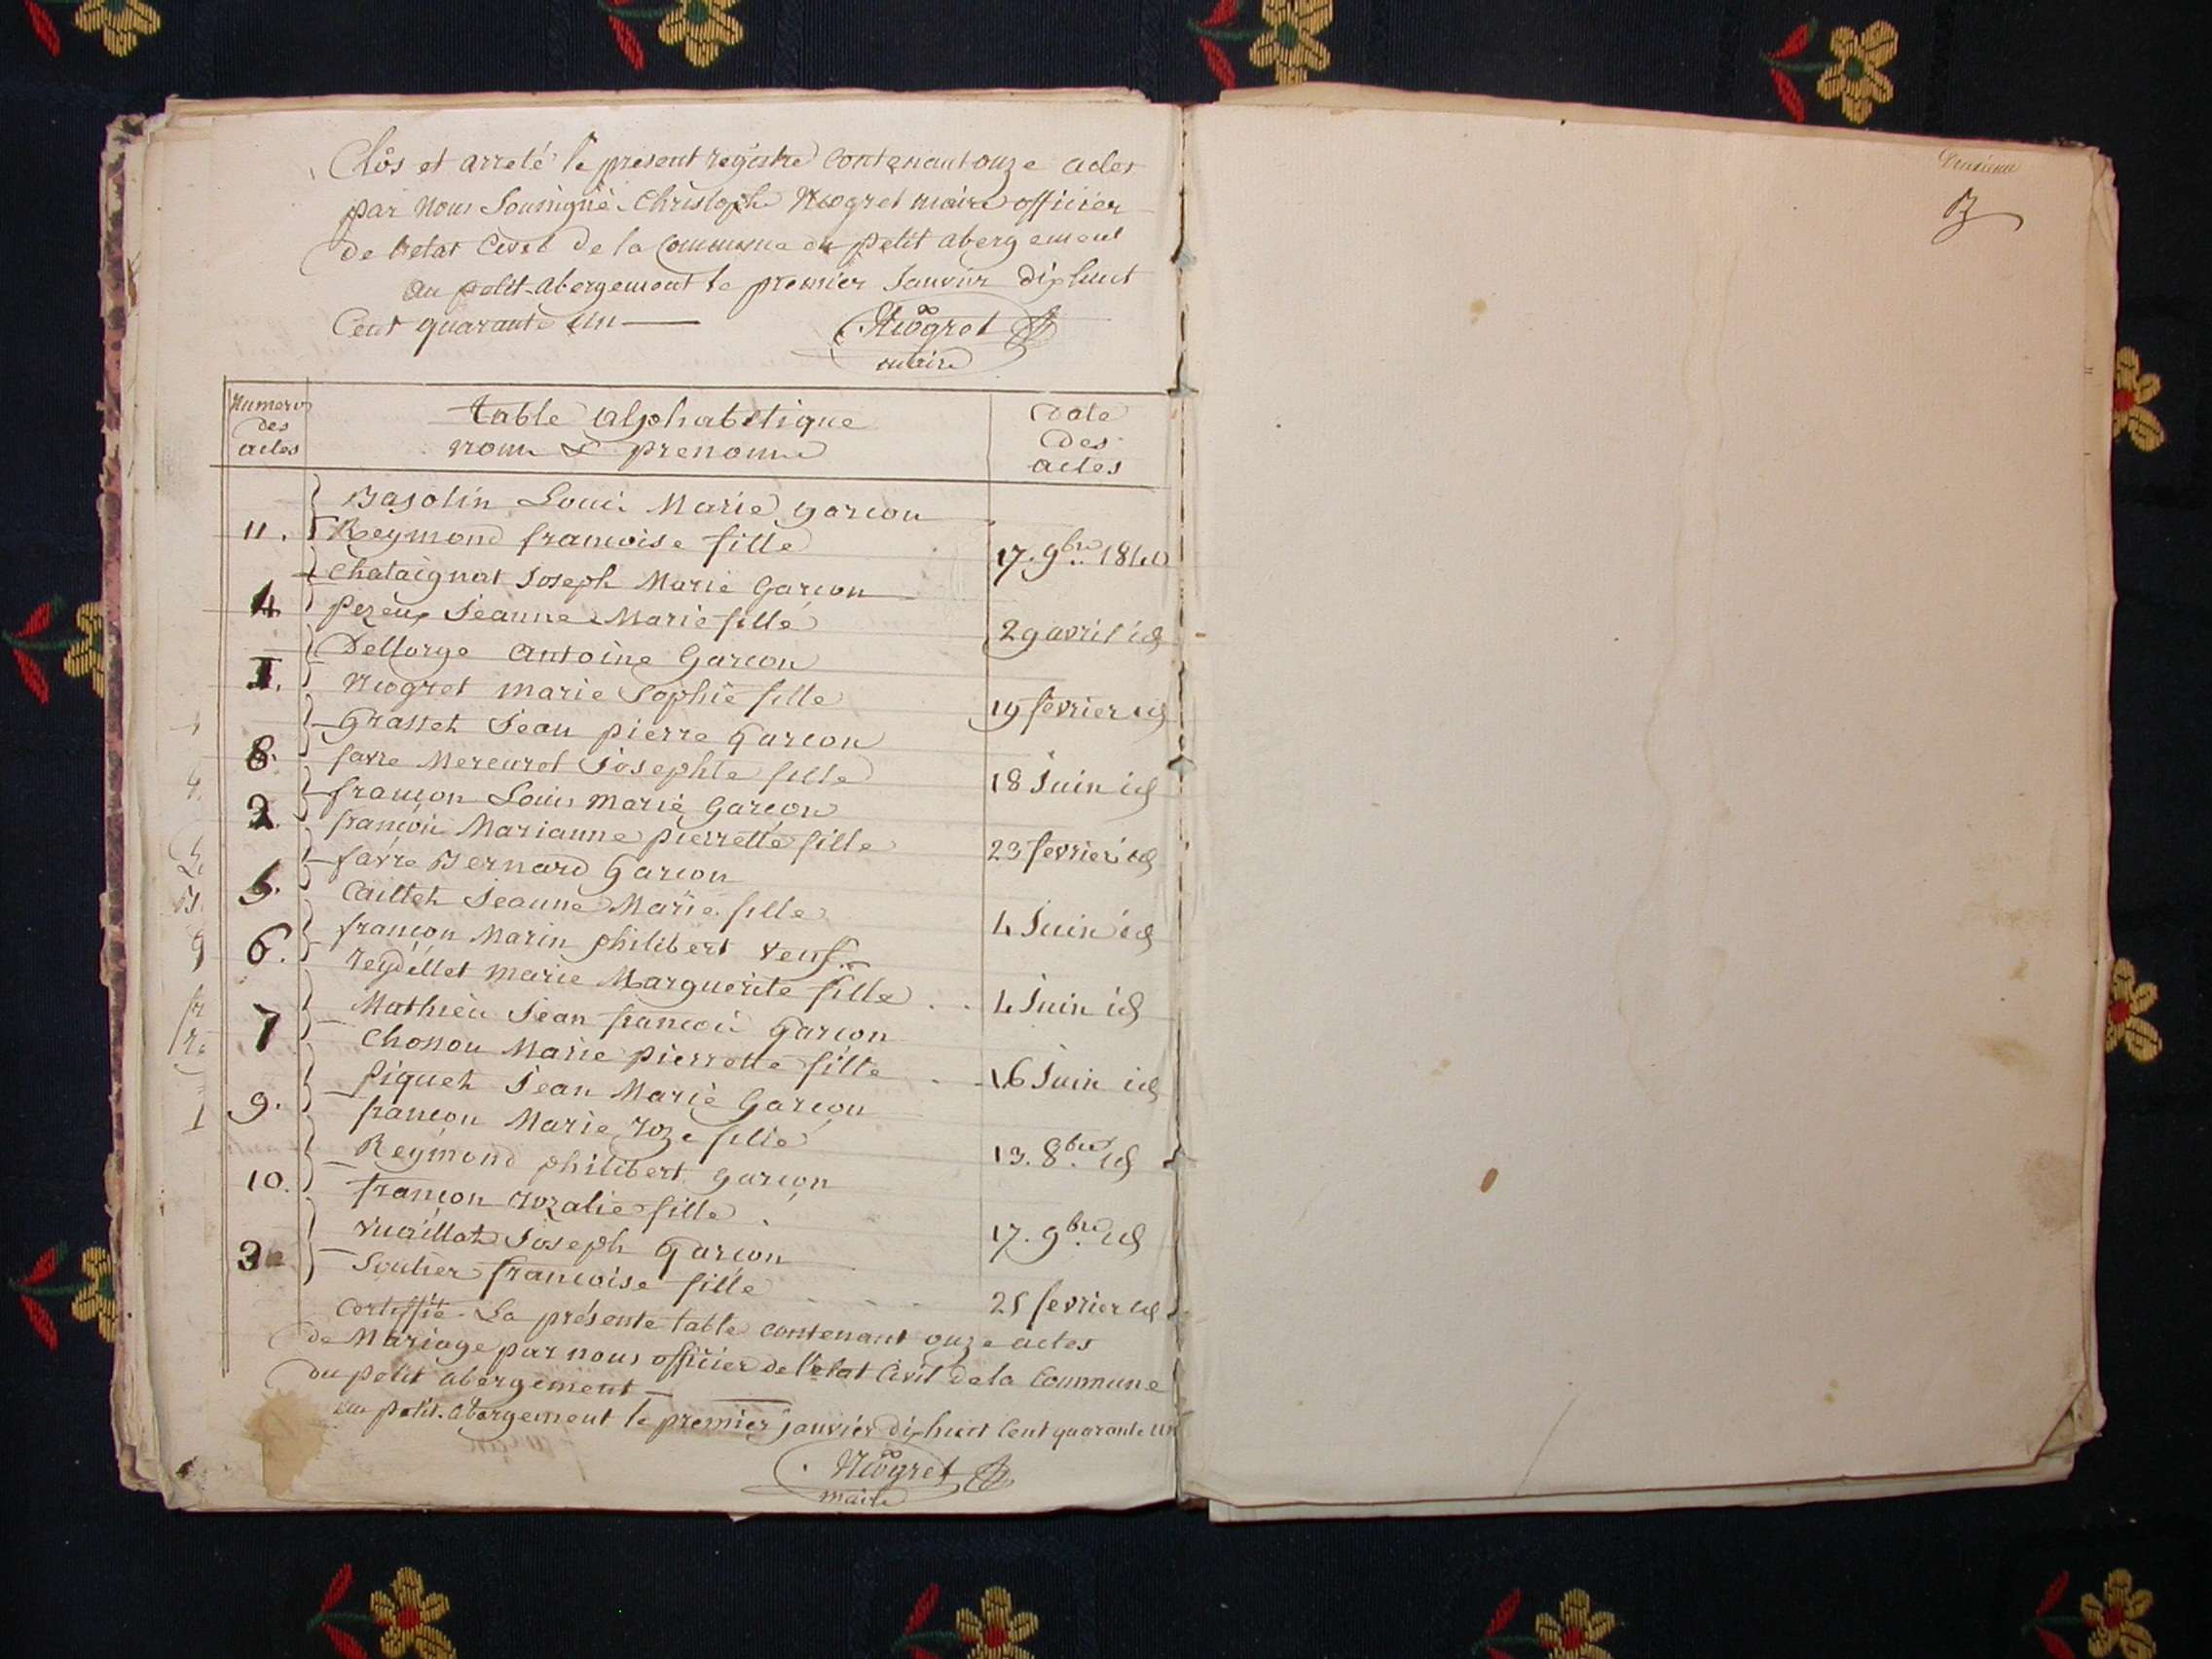 Clôs et arreté le present registre Contenant onze actes
par nous Soussigné Christophe Niogret maire officier
de l'etat Civil de la Commune du petit abergement
au petit-abergement le premier Janvier dix huit
Cent quarante un
Niogret
maire
Numero des actes
table alphabétique
nom & prenoms
Date
des
actes
Louis Marie garcon
11. Reymond francoise fille 17. 9bre 1840
Chataignat Joseph Marie Garcon
4 Jeanne Marie fille 29 avril id
Dellorge Antoine Garcon
1. Niogret marie Sophie fille 19 février id
Grasset Jean pierre Garcon
8. favre Mercurot Josephte fille 18 Juin id
françon Louis Marie Garcon
2. Marianne pierrette fille 23 fevrier id
favre Bernard Garcon
5. Caillet Jeanne Marie fille 4 Juin id
françon Marin philibert veuf
6. reydellet marie Marguerite fille 4 Juin id
Mathieu Jean francois Garcon
7 Marie pierrette fille 16 Juin id
piquet Jean Marie Garcon
9. françon Marie roze fille 13. 8bre id
Reymond philibert garcon
10. françon rozalie fille 17. 9bre id
vuaillat Joseph Garcon
3 francoise fille 25 fevrier id
Certiffié La présente table contenant onze actes
de Mariage par nous officier de l'etat Civil de la Commune
du petit abergement
au petit-abergement le premier janvier dix huit Cent quarante un
Niogret
maire